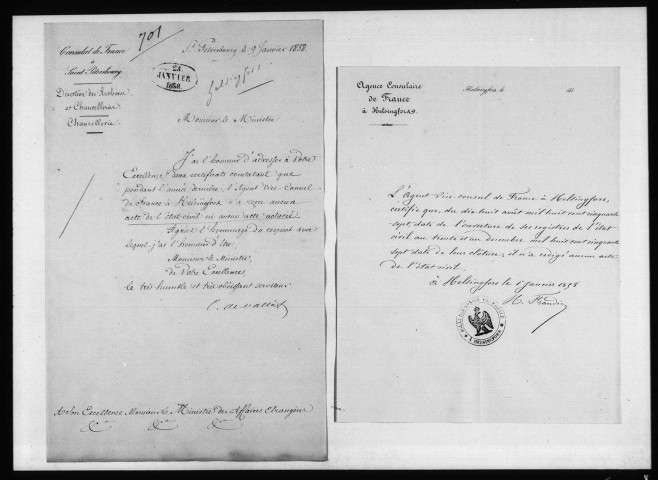 701
Consulat de France
à
Saint-Pétersbourg
Direction des Archives
et Chancelleries
Chancellerie
St Pétersbourg le 9 Janvier 1858
23
JANVIER
1858
Helsingfors
Monsieur le Ministre
J'ai l'honneur d'adresser à Votre
Excellence deux certificats constatant que
pendant l'année dernière l'Agent Vice-Consul
de France à Helsingfors n'a reçu aucun
acte de l'état civil ni aucun acte notarié
Agréez l'hommage du respect avec
lequel j'ai l'honneur d'être,
Monsieur le Ministre,
de Votre Excellence,
le très humble et très obéissant serviteur
A Son Excellence Monsieur le Ministre des Affaires Etrangères
Agence Consulaire
de France
à Helsingfors.
Helsingfors le 185
L'Agent Vice-consul de France à Helsingfors,
certifie que, du dix huit août mil huit cent cinquante
sept date de l'ouverture de ses registres de l'état
civil au trente et un décembre mil huit cent cinquante
sept date de leur clôture, il n'a rédigé aucun acte
de l'état civil.
à Helsingfors le 1 Janvier 1858